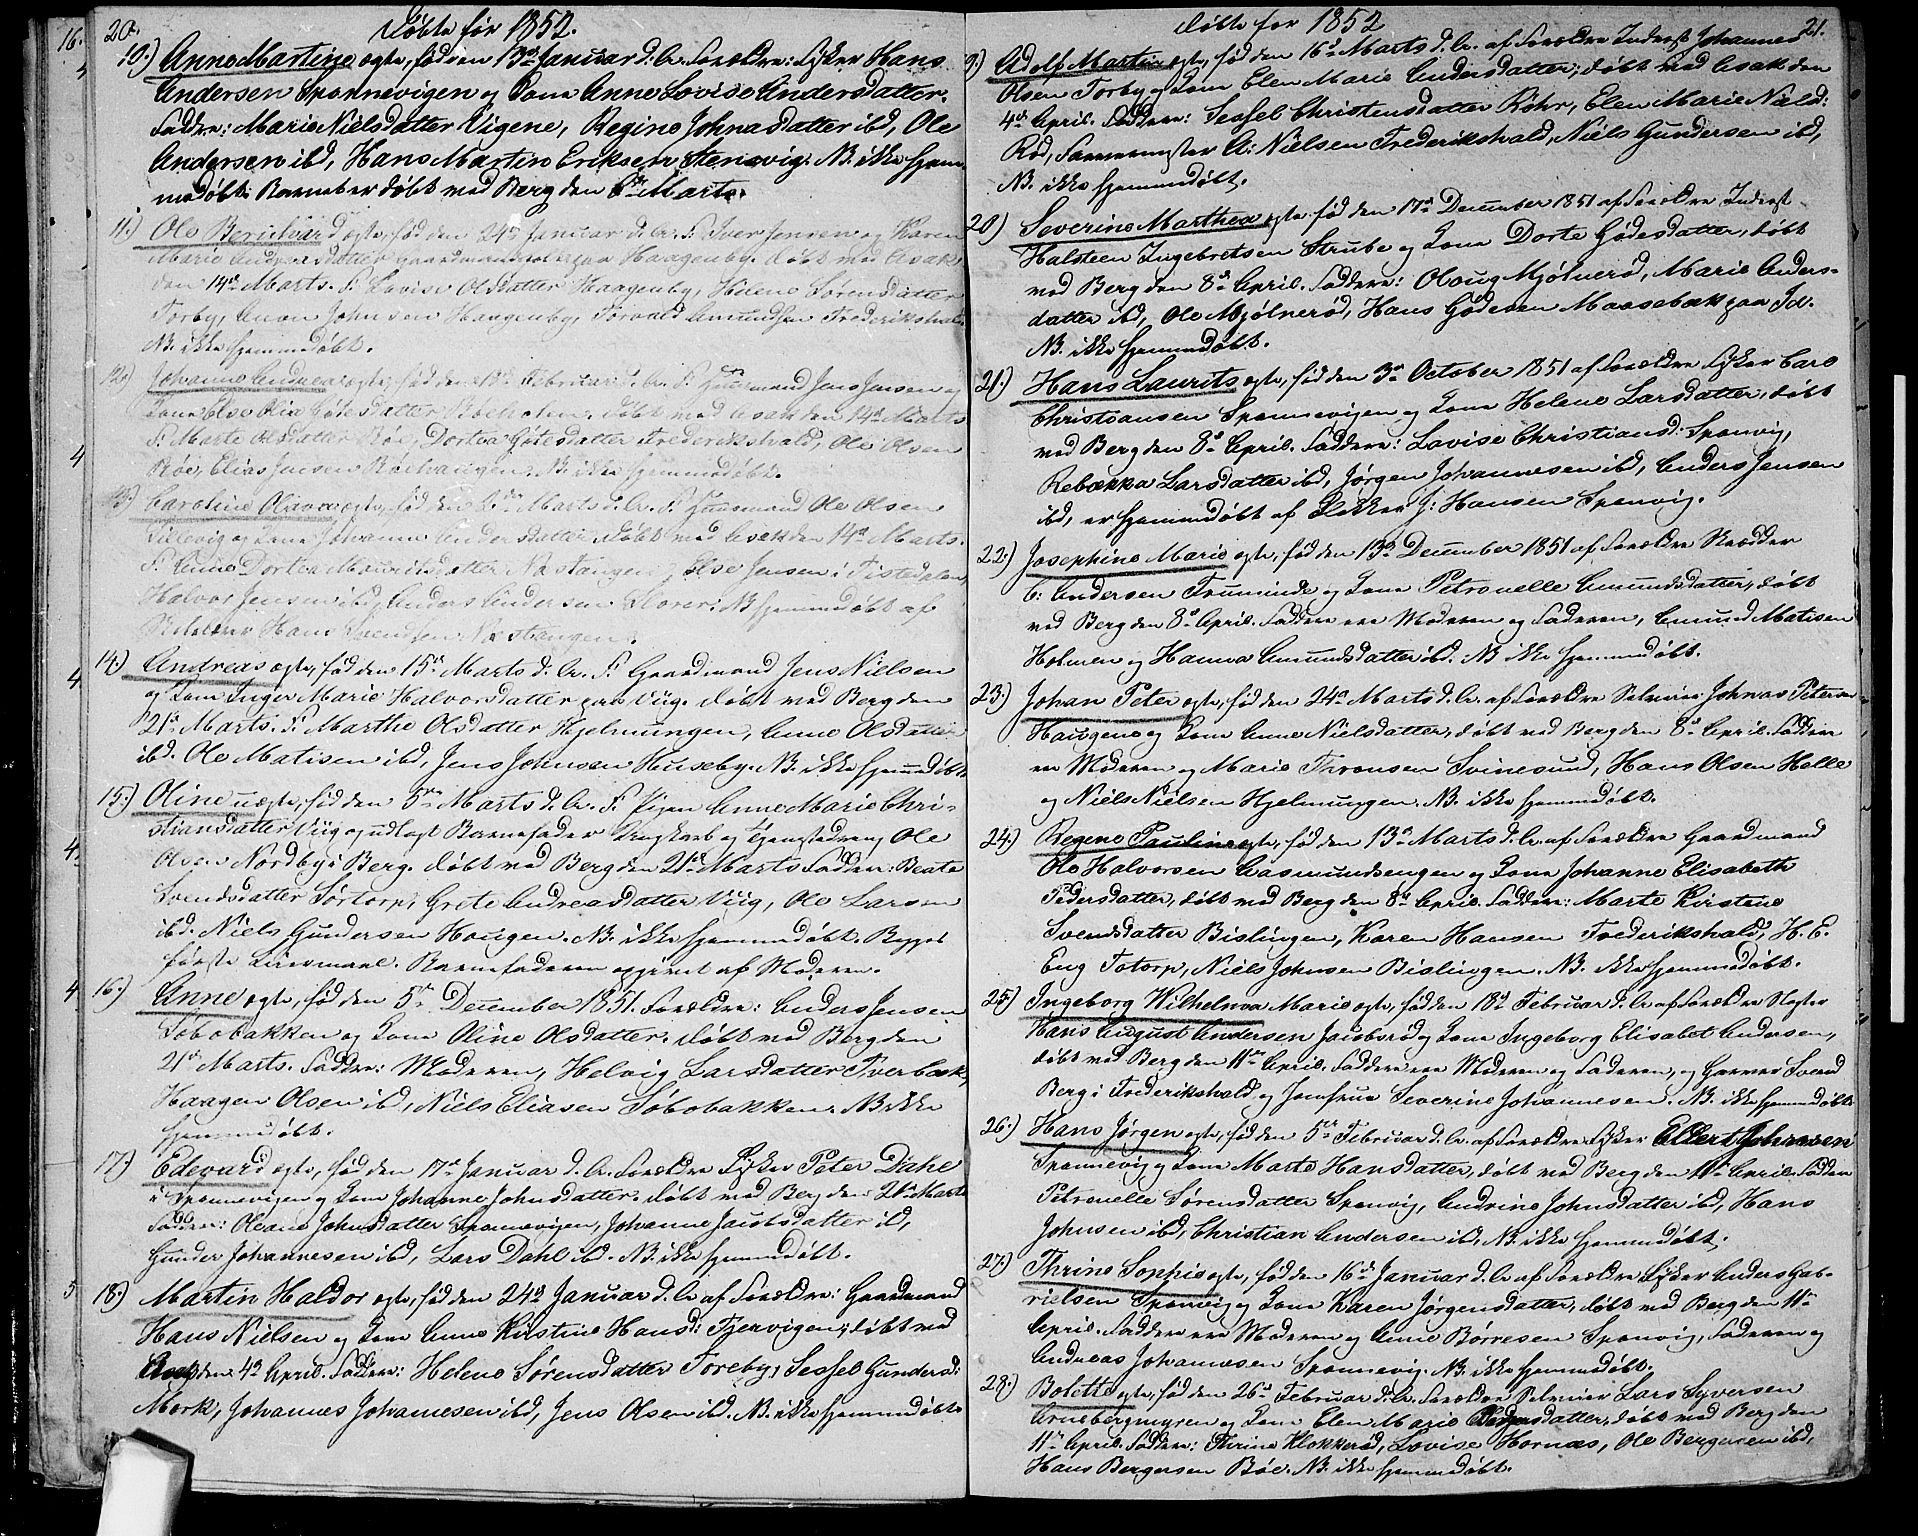 20.
Døbte for 1852.
10.) Anne Martine ægte, fød den 13de Januar d. Aar. Forældre: Fisker Hans
Andersen Sponnevigen og Kone Anne Lovise Andersdatter.
Faddere: Marie Nielsdatter Vigene, Regine Johnasdatter ibd, Ole
Andersen ibd, Hans Martin Eriksen Stensvig. NB. ikke hjem-
medøbt. Barnet er døbt ved Berg den Marts.
11.) Ole Bernhard ægte, fød den 24de Januar d. Aar. F. Iver Jensen og Karen
Marie Andreasdatter paa Haagenby. døbt ved Asak
den 14de Marts. F. Lovise Olsdatter Haagenby, Helene Sørensdatter
Torby, Johnsen Haagenby, Torvald Amundsen Frederikshald.
NB. ikke hjemmedøbt.
12.) Johanne Andrea ægte, fød den 13de Februar d. Aar. F. Huusmand Jens Jensen og
Kone Else Olia Gødesdatter døbt ved Asak den 14de Marts
F. Marte Olsdatter Røe, Dortea Gøtesdatter Frederikshald, Ole Olsen
Røe, Elias Jensen NB. ikke hjemmedøbt.
13.) Caroline Olava ægte, fød den Marts d. Aar. F. Huusmand Ole Olsen
og Kone Johanne Andersdatter. døbt ved Asak den 14de Marts.
F. Anne Dortea Mauritsdatter Næstangen, Else Jensen i Tistedalen
Halvor Jensen ibd, Anders Andersen NB hjemmedøbt af
Hans Svendsen Næstangen.
14.) Andreas ægte, fød den 15de Marts d. Aar. F. Gaardmand Jens Nielsen
og Kone Inger Marie Halvorsdatter paa Viig. døbt ved Berg den
21de Marts. F. Marthe Olsdatter Hjelmungen, Anne Olsdatter
ibd. Ole Matisen ibd, Jens Johnsen Huseby. NB. ikke hjemmedøbt
15.) Oline uægte, fød den 5te Marts d. Aar. F. Pigen Anne Marie Chri-
stiansdatter Viig og udlagt Barnefader Ungkarl og Tjenstedreng Ole
Olsen Nordby i Berg. døbt ved Berg den 21de Marts Faddere: Beate
Svendsdatter Sørtorp, Grete Andreasdatter Viig, Ole Larsen
ibd. Niels Gundersen Haugen. NB. ikke hjemmedøbt. Begges
første Leiermaal. Barnefaderen opgivet af Moderen.
16.) Anne ægte, fød den 5te December 1851. Forældre: Anders Jensen
Sobobakken og Kone Oline Olsdatter. døbt ved Berg den
21de Marts. Faddere: Moderen, Helvig Larsdatter Tverbæk,
Haagen Olsen ibd, Niels Eliasen Sobobakken. NB ikke
hjemmedøbt.
17.) Edevard ægte, fød den 17de Januar d. Aar. Forældre Fisker Peter Dahl
i Sponnevigen og Kone Johanne Johnsdatter. døbt ved Berg den 21de Marts
Faddere: Oleane Johnsdatter Sponnevigen, Johanne Jacobsdatter ibd,
Gunder Johannesen ibd, Lars Dahl ibd. NB. ikke hjemmedøbt.
18.) Martin Haldor ægte, fød den 24de Januar d. Aar af Forældre: Gaardmand
Hans Nielsen og Kone Anne Kirstine Hansd: Tjervigen, døbt ved
Asak den 4de April. Faddere: Helene Sørensdatter Toreby, Sessel Gundersd:
Mork, Johannes Johannesen ibd, Jens Olsen ibd. NB. ikke hjemmedøbt.
21.
Døbte for 1852
19.) Adolf Martin ægte, fød den 16de Marts d. Aar. af Forældre Inderst Johannes
Olsen Torby og Kone Elen Marie Andersdatter, døbt ved Asak den
4de April. Faddere: Sessel Christensdatter Röhr, Elen Marie Nielsd:
Rød, Farvermester A: Nielsen Frederikshald, Niels Gundersen ibd,
NB. ikke hjemmedøbt.
20.) Severine Marthea ægte fød den 17de December 1851 af Forældre Inderst
Halsteen Ingebretsen Strube og Kone Dorte Gødesdatter, døbt
ved Berg den 8de April. Faddere: Oloug Mjølnerød, Marie Anders-
datter ibd, Ole Mjølnerød, Hans Gødesen Maasebæk paa Id.
NB. ikke hjemmedøbt.
21.) Hans Laurits ægte, fød den 3de October 1851 af Forældre Fisker Carl
Christiansen Sponnevigen og Kone Helene Larsdatter, døbt
ved Berg den 8de April. Faddere: Lovise Christiansd: Sponvig,
Rebækka Larsdatter ibd, Jørgen Johannesen ibd, Anders Jensen
ibd, er hjemmedøbt af Klokker J: Hansen Sponvig.
22.) Josephine Marie ægte, fød den 13de December 1851 af Forældre Skrædder
C: Andersen og Kone Petronelle Amundsdatter, døbt
ved Berg den 8de April. Faddere ere Moderen og Faderen, Amund Matisen
Holmen og Hanna Amundsdatter ibd. NB ikke hjemmedøbt.
23.) Johan Peter ægte, fød den 24de Marts d. Aar. af Forældre Selveier Johnas Petersen
Haugene og Kone Anne Nielsdatter, døbt ved Berg den 8de April. Faddere
ere Moderen og Marie Thronsen Svinesund, Hans Olsen Helle
og Niels Nielsen Hjelmungen. NB. ikke hjemmedøbt.
24.) Regine Pauline ægte, fød den 13de Marts d. Aar. af Forældre Gaardmand
Ole Halvorsen Aasmundsengen og Kone Johanne Elisabeth
Pedersdatter, døbt ved Berg den 8de April. Faddere: Marte Kirstene
Svendsdatter Bislingen, Karen Hansen Frederikshald, H. E.
Eng Totorp, Niels Johnsen Bislingen. NB. ikke hjemmedøbt.
25.) Ingeborg Wilhelmva Marie ægte, fød den 18de Februar d. Aar af Forældre Slagter
Hans August Andersen Jacobsrød og Kone Ingeborg Elisabet Andersen,
døbt ved Berg den 11te April. Faddere ere Moderen og Faderen, og Garver Svend
Berg i Frederikshald og Jomfrue Severine Johannesen. NB. ikke hjemmedøbt
26.) Hans Jørgen ægte, fød den 5te Februar d. Aar. af Forældre Fisker Ellert Johnsen
Sponnevig og Kone Marte Hansdatter, døbt ved Berg den 11te April. Faddere
Petronelle Sørensdatter Sponvig, Andrine Johnsdatter ibd, Hans
Johnsen ibd, Christian Andersen ibd, NB. ikke hjemmedøbt.
27.) Thrine Sophie ægte, fød den 16de Januar d. Aar af Forældre Fisker Anders Gab-
rielsen Sponvig og Kone Karen Jørgensdatter, døbt ved Berg den 11te
April. Faddere ere Moderen og Anne Børresen Sponvig, Faderen og
Andreas Johannesen Sponnevig. NB. ikke hjemmedøbt.
28.) Bolette ægte, fød den 26de Februar d. Aar. Forældre Selveier Lars Syversen
Arnebergmyren og Kone Elen Marie døbt ved Berg den
11te April. Faddere: Thrine Klokkerød, Lovise Hornæs, Ole Bergersen ibd,
Hans Bergersen Bøe. NB. ikke hjemmedøbt.